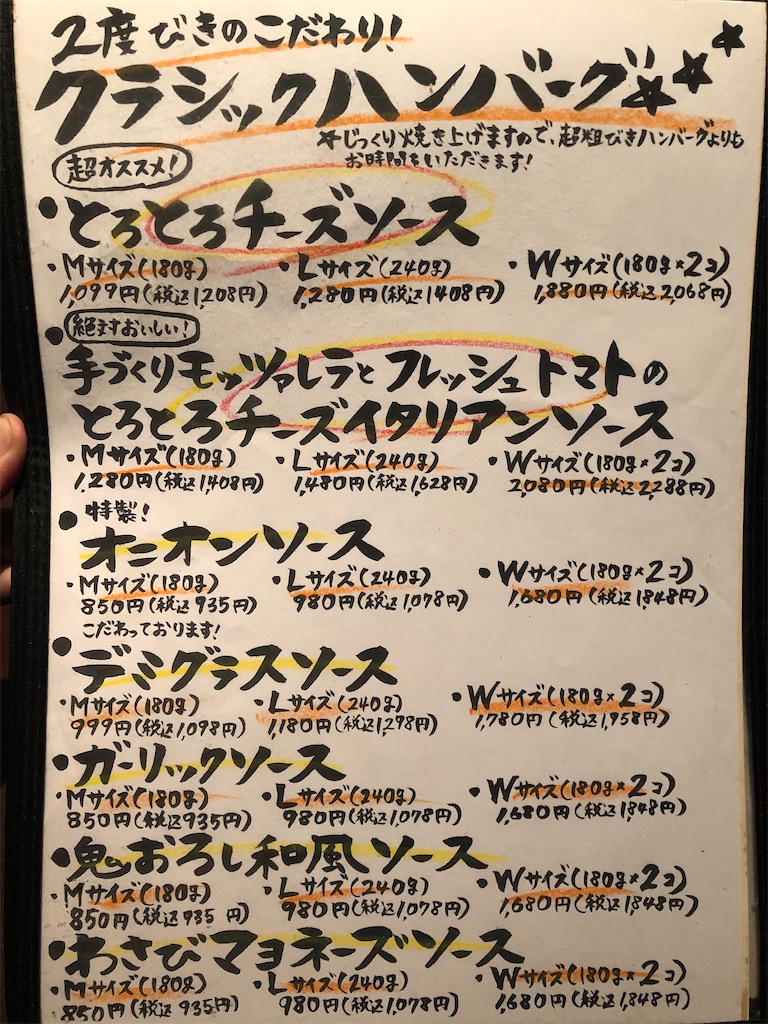 2度びきのこだわり!
クラシックハンバーグ☆☆☆
☆じっくり焼き上げますので、超粗びきハンバーグよりも
お時間をいただきます!
超オススメ!
・とろとろチーズソース
・Mサイズ(180g) ・Lサイズ(240g) ・Wサイズ(180g×2コ)
1,099円(税込1,208円) 1,280円(税込1408円) 1,880円(税込2,068円)
絶ますおいしい!
・手づくりモッツァレラとフレッシュトマトの
とろとろチーズイタリアンソース
・Mサイズ(180g) ・Lサイズ(240g) ・Wサイズ(180g×2コ)
1,280円(税込1,408円) 1,480円(税込1,628円) 2,080円(税込2,288円)
特製!
・オニオンソース
・Mサイズ(180g) ・Lサイズ(240g) ・Wサイズ(180g×2コ)
850円(税込935円) 980円(税込1,078円) 1,680円(税込1,848円)
こだわっております!
・デミグラスソース
・Mサイズ(180g) ・Lサイズ(240g) ・Wサイズ(180g×2コ)
999円(税込1,098円) 1,180円(税込1,298円) 1,780円(税込1,958円)
・ガーリックソース
・Mサイズ(180g) ・Lサイズ(240g) ・Wサイズ(180g×2コ)
850円(税込935円) 980円(税込1,078円) 1,680円(税込1,848円)
・鬼おろし和風ソース
・Mサイズ(180g) ・Lサイズ(240g) ・Wサイズ(180g×2コ)
850円(税込935円) 980円(税込1,078円) 1,680円(税込1,848円)
・わさびマヨネーズソース
・Mサイズ(180g) ・Lサイズ(240g) ・Wサイズ(180g×2コ)
850円(税込935円) 980円(税込1,078円) 1,680円(税込1,848円)